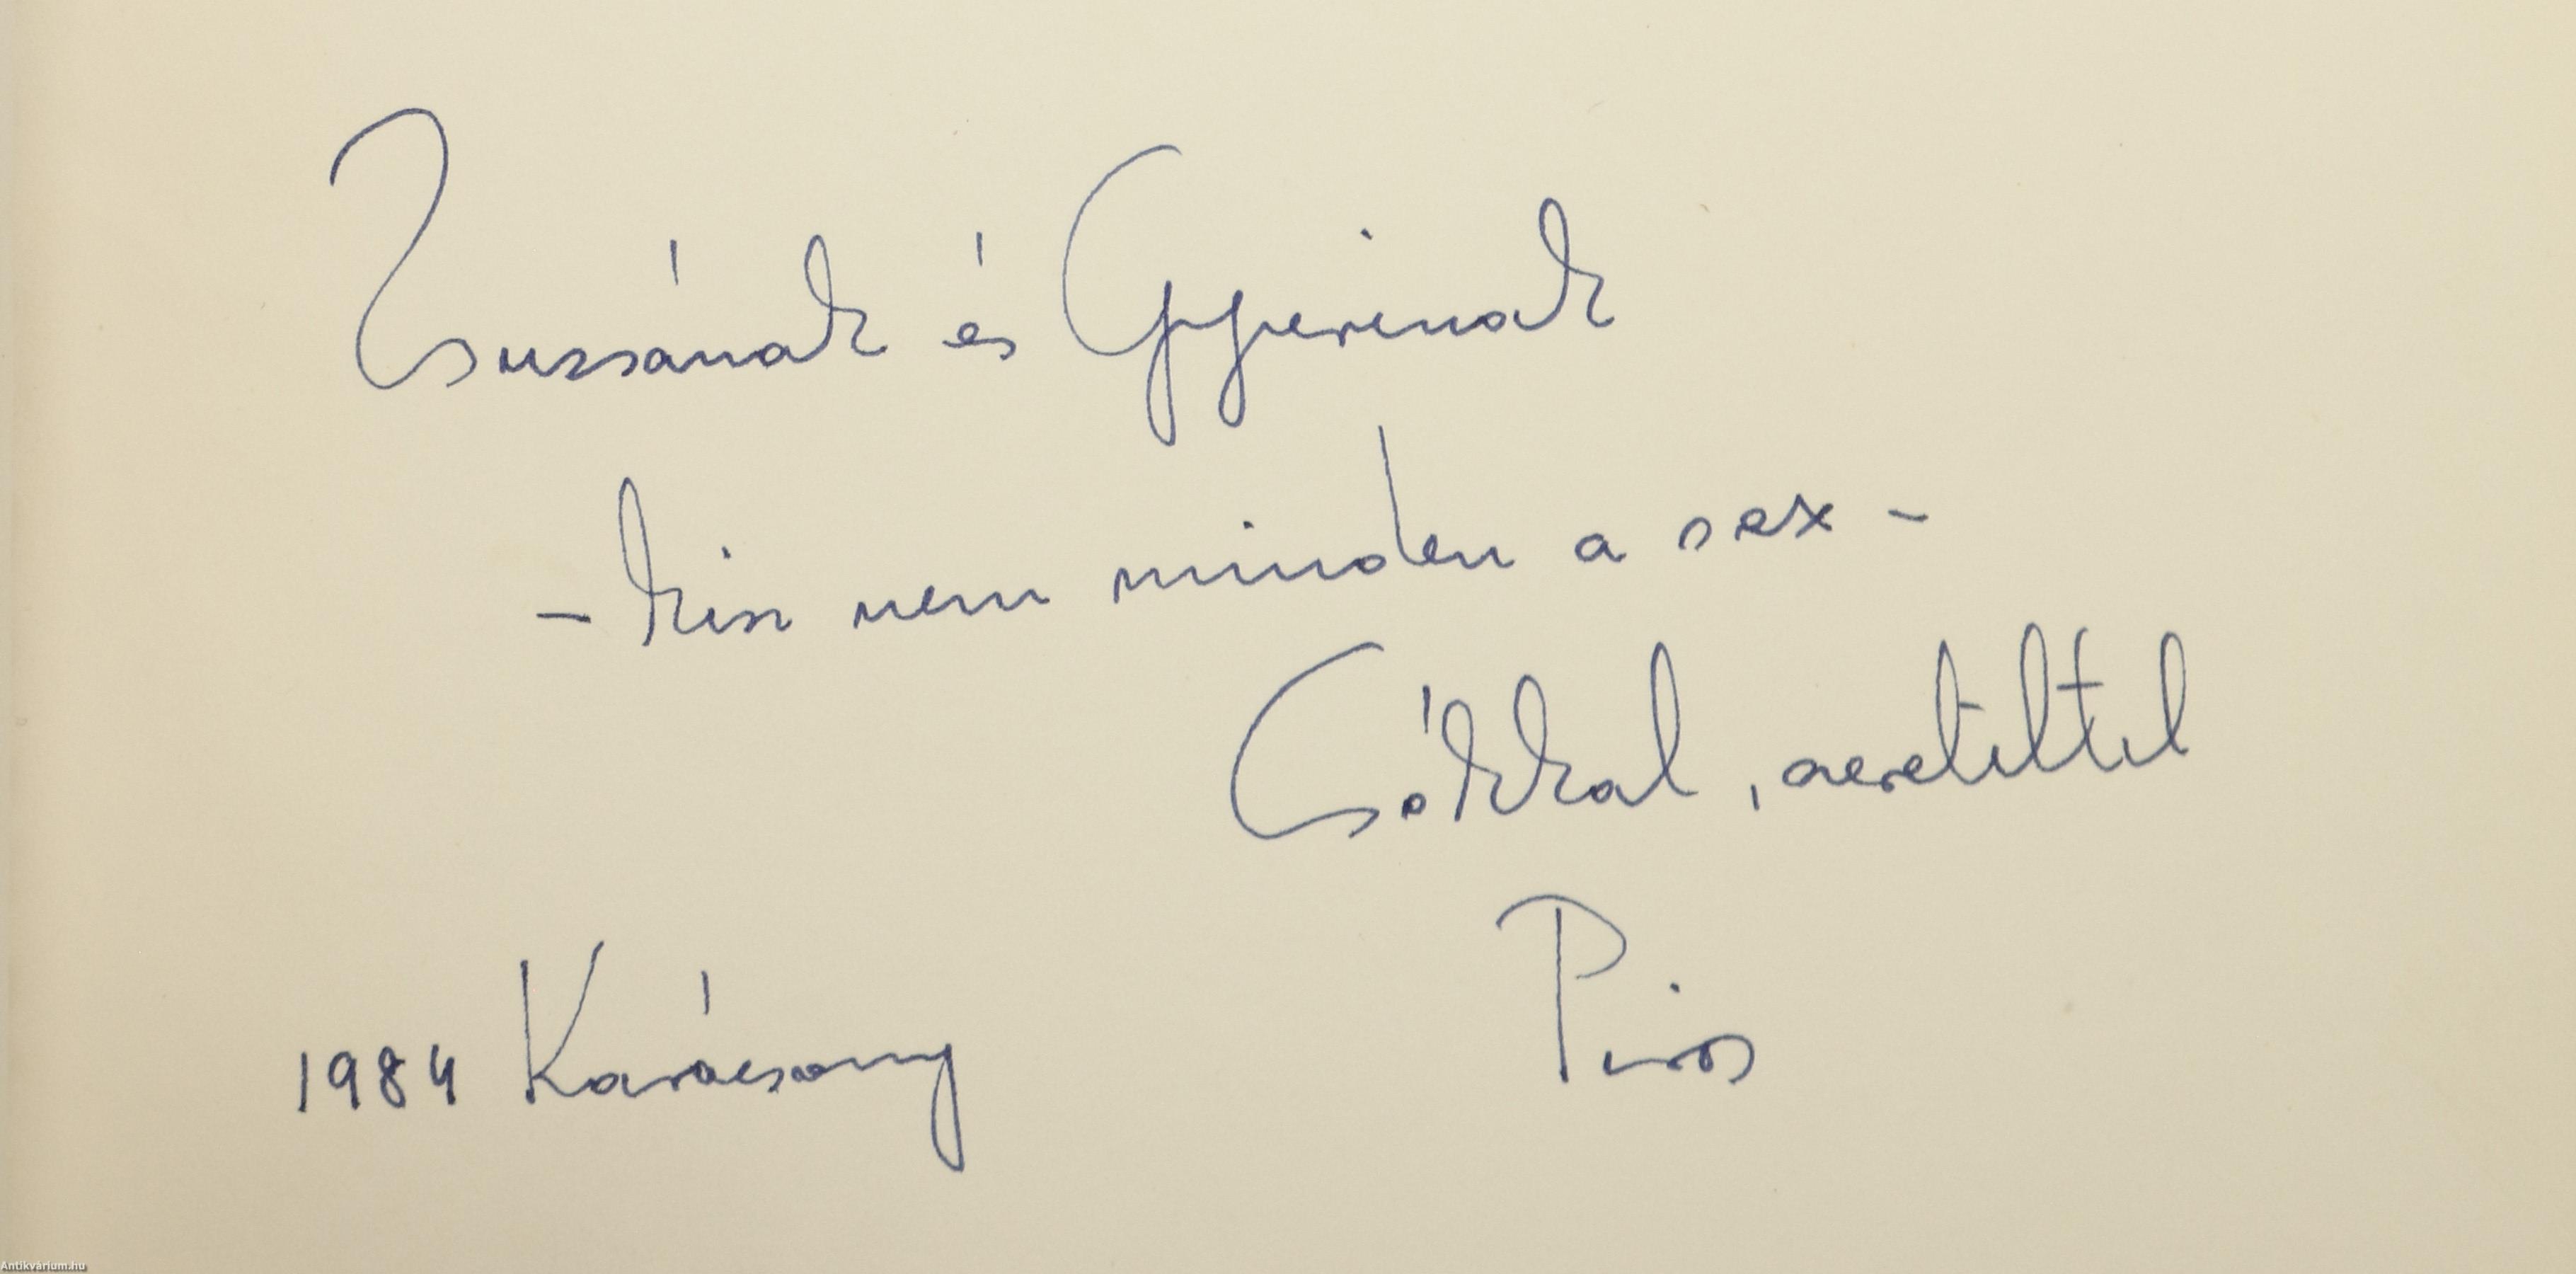 Zsuzsának és Gyurinak
- hisz nem minden a sex -
Csókkal, szeretettel
Piros
1984 Karácsony
Antikvárium.hu